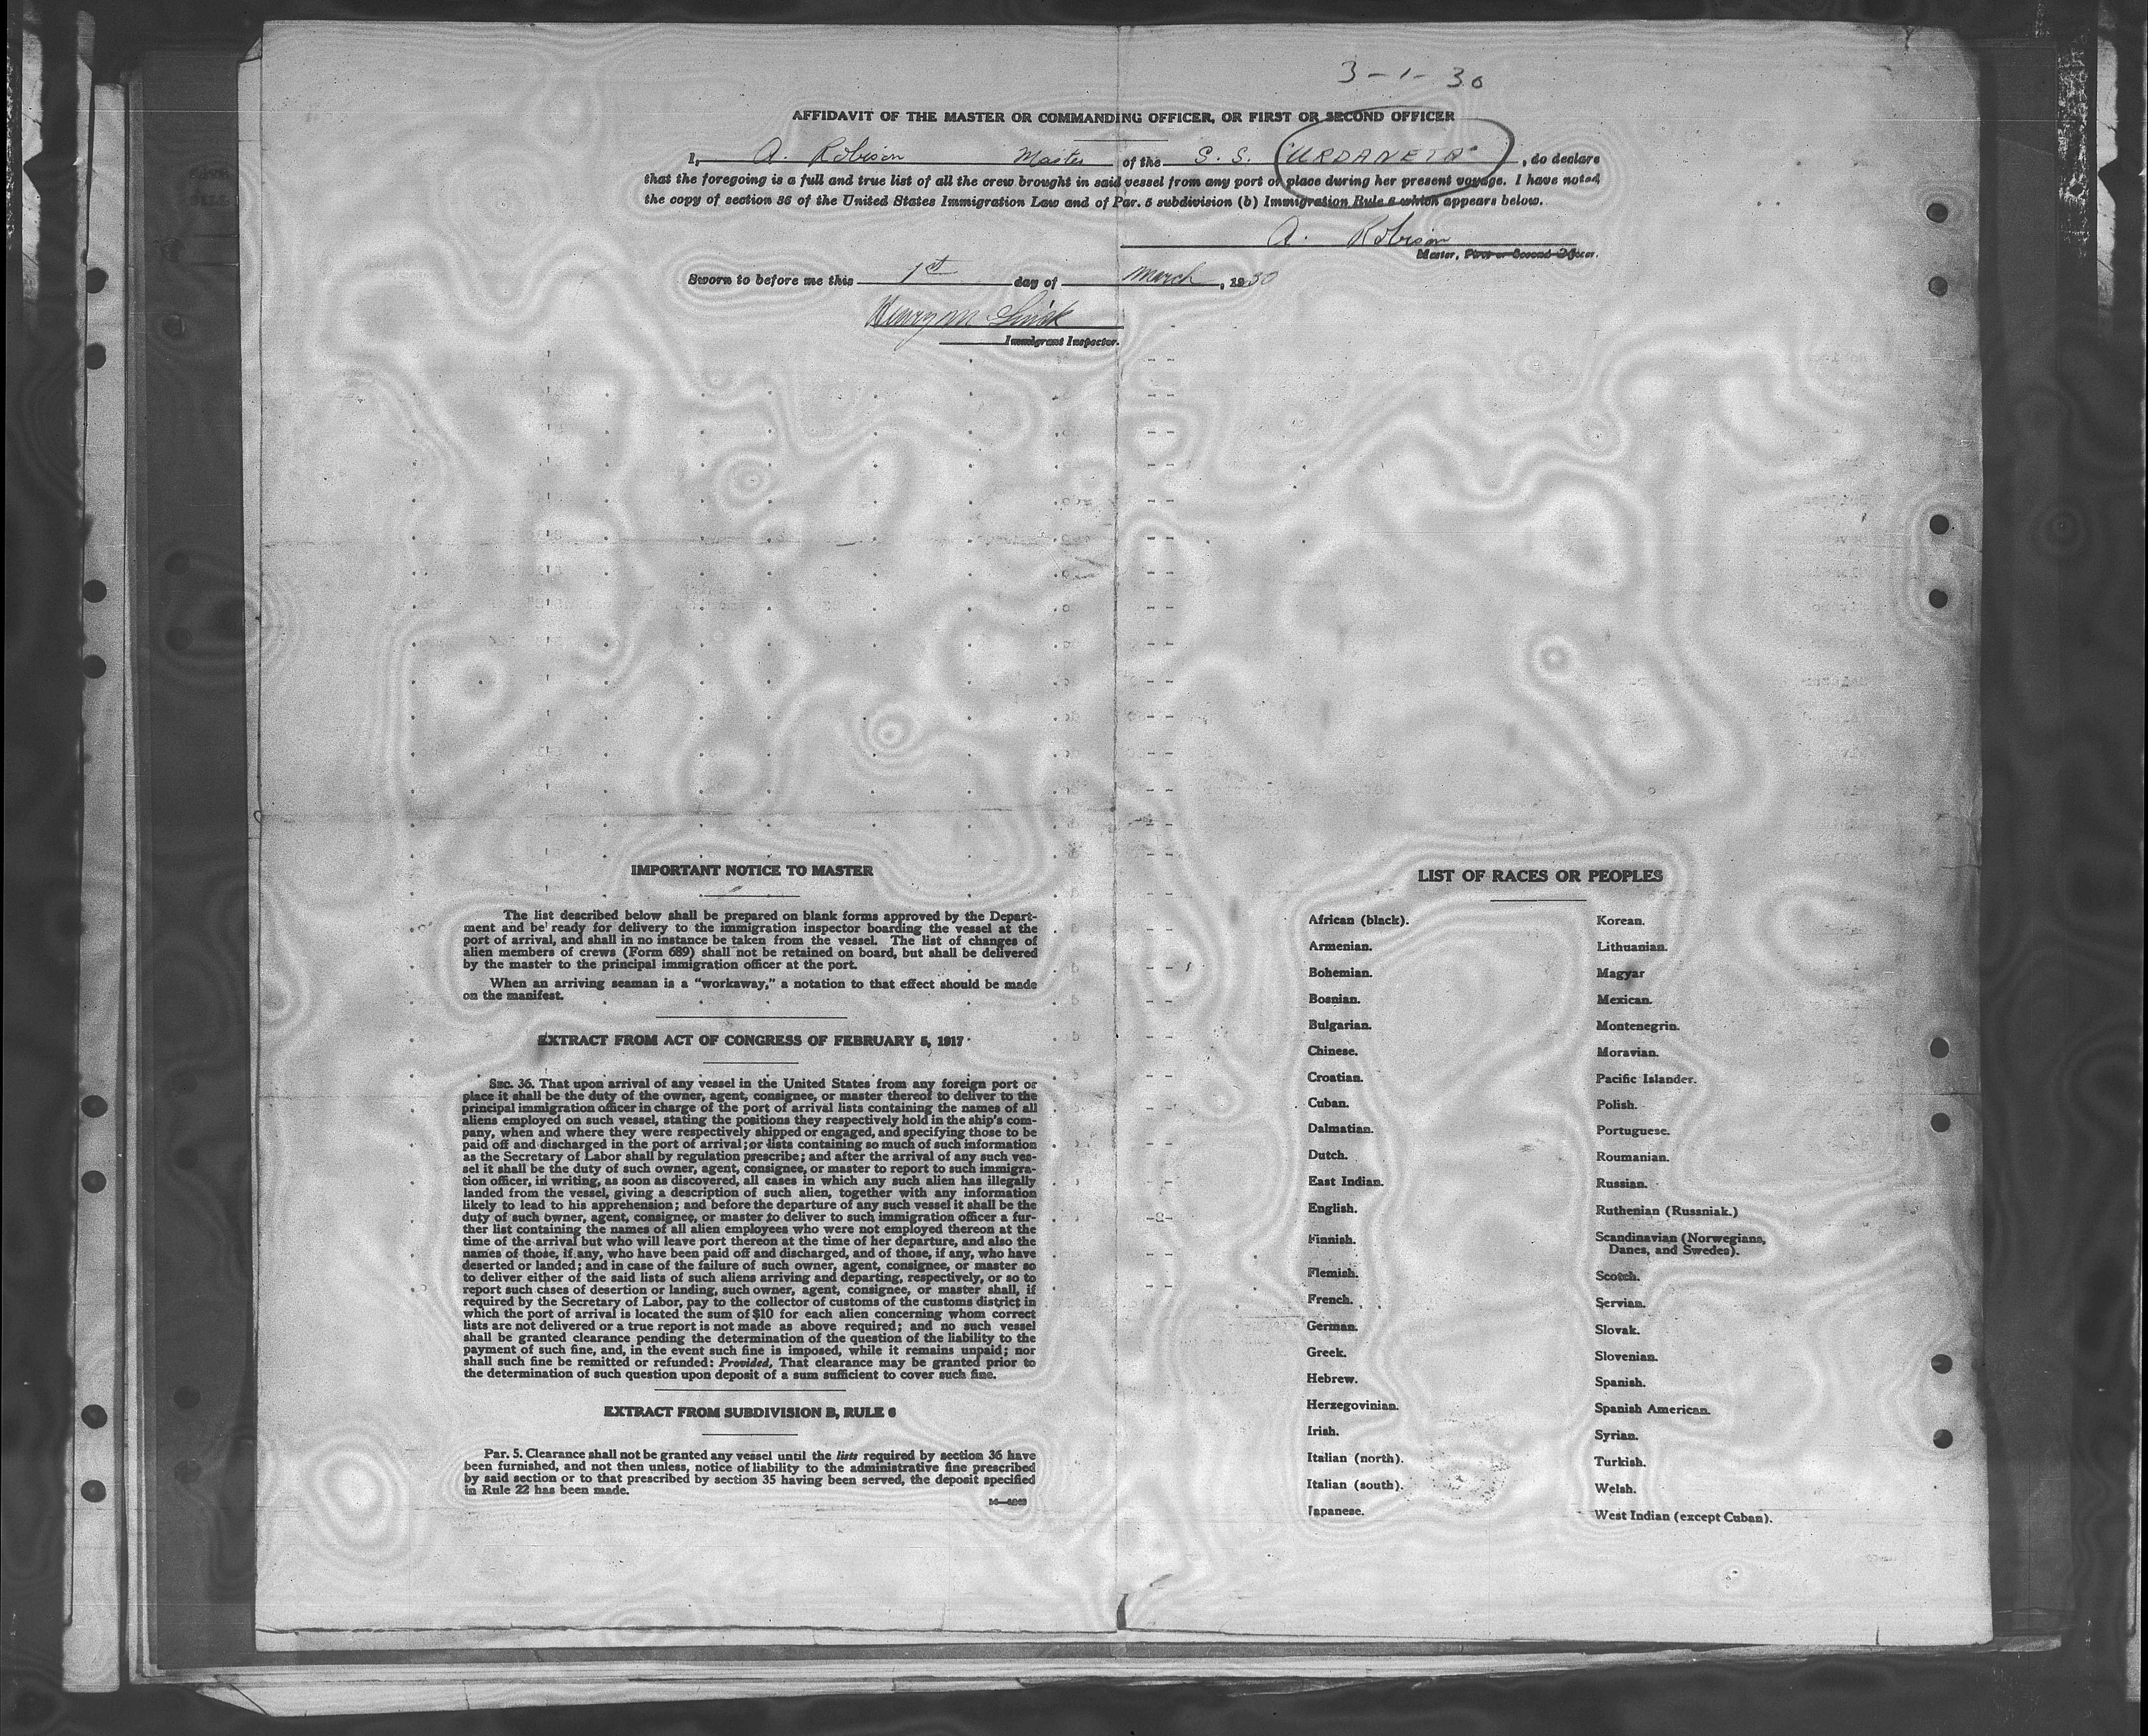 3-1-30
AFFIDAVIT OF THE MASTER OR COMMANDING OFFICER, OR FIRST OR SECOND OFFICER
I, A. Robison Master of the S. S. "URDANETA", do declare
that the foregoing is a full and true list of all the crew brought in said vessel from any port or place during her present voyage. I have noted
the copy of section 36 of the United States Immigration Law and of Par. 5 subdivision (b) Immigration Rule 6 which appears below.
A. Robison
Master, First or Second Officer.
Sworn to before me this 1st day of March, 1930
Henry M
Immigrant Inspector.
IMPORTANT NOTICE TO MASTER
The list described below shall be prepared on blank forms approved by the Depart-
ment and be ready for delivery to the immigration inspector boarding the vessel at the
port of arrival, and shall in no instance be taken from the vessel. The list of changes of
alien members of crews (Form 689) shall not be retained on board, but shall be delivered
by the master to the principal immigration officer at the port.
When an arriving seaman is a "workaway," a notation to that effect should be made
on the manifest.
EXTRACT FROM ACT OF CONGRESS OF FEBRUARY 5, 1917
SEC. 36. That upon arrival of any vessel in the United States from any foreign port or
place it shall be the duty of the owner, agent, consignee, or master thereof to deliver to the
principal immigration officer in charge of the port of arrival lists containing the names of all
aliens employed on such vessel, stating the positions they respectively hold in the ship's com-
pany, when and where they were respectively shipped or engaged, and specifying those to be
paid off and discharged in the port of arrival; or lists containing so much of such information
as the Secretary of Labor shall by regulation prescribe; and after the arrival of any such ves-
sel it shall be the duty of such owner, agent, consignee, or master to report to such immigra-
tion officer, in writing, as soon as discovered, all cases in which any such alien has illegally
landed from the vessel, giving a description of such alien, together with any information
likely to lead to his apprehension; and before the departure of any such vessel it shall be the
duty of such owner, agent, consignee, or master to deliver to such immigration officer a fur-
ther list containing the names of all alien employees who were not employed thereon at the
time of the arrival but who will leave port thereon at the time of her departure, and also the
names of those, if any, who have been paid off and discharged, and of those, if any, who have
deserted or landed; and in case of the failure of such owner, agent, consignee, or master so
to deliver either of the said lists of such aliens arriving and departing, respectively, or so to
report such cases of desertion or landing, such owner, agent, consignee, or master shall, if
required by the Secretary of Labor, pay to the collector of customs of the customs district in
which the port of arrival is located the sum of $10 for each alien concerning whom correct
lists are not delivered or a true report is not made as above required; and no such vessel
shall be granted clearance pending the determination of the question of the liability to the
payment of such fine, and, in the event such fine is imposed, while it remains unpaid; nor
shall such fine be remitted or refunded: Provided, That clearance may be granted prior to
the determination of such question upon deposit of a sum sufficient to cover such fine.
EXTRACT FROM SUBDIVISION B, RULE 6
Par. 5. Clearance shall not be granted any vessel until the lists required by section 36 have
been furnished, and not then unless, notice of liability to the administrative fine prescribed
by said section or to that prescribed by section 35 having been served, the deposit specified
in Rule 22 has been made.
LIST OF RACES OR PEOPLES
African (black).
Armenian.
Bohemian.
Bosnian.
Bulgarian.
Chinese.
Croatian.
Cuban.
Dalmatian.
Dutch.
East Indian.
English.
Finnish.
Flemish.
French.
German.
Greek.
Hebrew.
Herzegovinian.
Irish.
Italian (north).
Italian (south).
Japanese.
Korean.
Lithuanian.
Magyar
Mexican.
Montenegrin.
Moravian.
Pacific Islander.
Polish.
Portuguese.
Roumanian.
Russian.
Ruthenian (Russniak.)
Scandinavian (Norwegians,
Danes, and Swedes).
Scotch.
Servian.
Slovak.
Slovenian.
Spanish.
Spanish American.
Syrian.
Turkish.
Welsh.
West Indian (except Cuban).